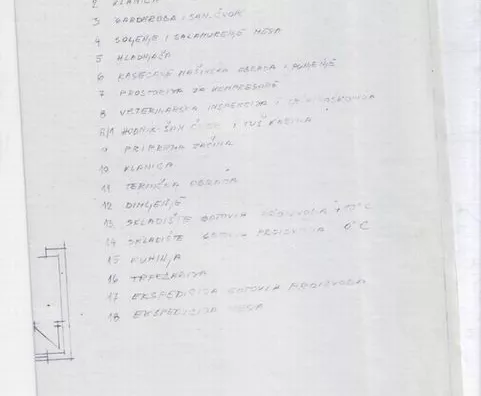 2 KLANICA
3 GARDEROBA I SAN. ČVOR
4 SOLJENJE I SALAMURENJE MESA
5 HLADNJAČA
6 MAŠINSKA OBRADA I PUNJENJE
7 PROSTORIJA ZA KOMPRESORE
8 VETERINARSKA INSPEKCIJA I
8/1 HODNIK-SAN. I TUŠ KABINA
9 PRIPREMA ZAČINA
10 KLANICA
11 TERMIČKA OBRADA
12 DIMLJENJE
13 SKLADIŠTE GOTOVIH PROIZVODA °C
14 SKLADIŠTE PROIZVODA 0°C
15 KUHINJA
16 TRPEZARIJA
17 EKSPEDICIJA GOTOVIH PROIZVODA
18 EKSPEDICIJA MESA